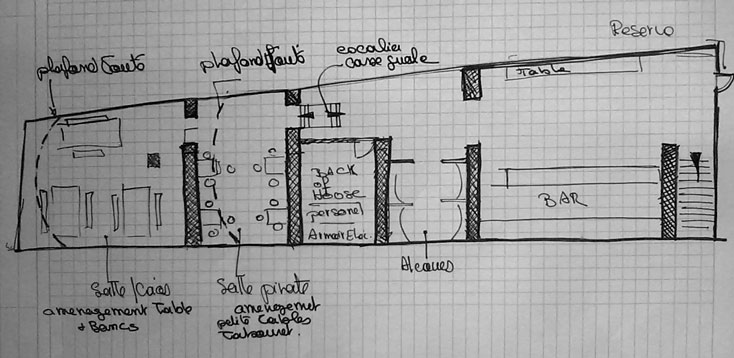 Reserve
plafond Vouté
plafond Vouté
escalier
casse guele
Table
BACK
OF
HOOSE
personel
Armoir Elec.
BAR
Alcoves
Salle
amenagement Table
+ Bancs
Salle private
amenagemet
petite tables
Tabouret.